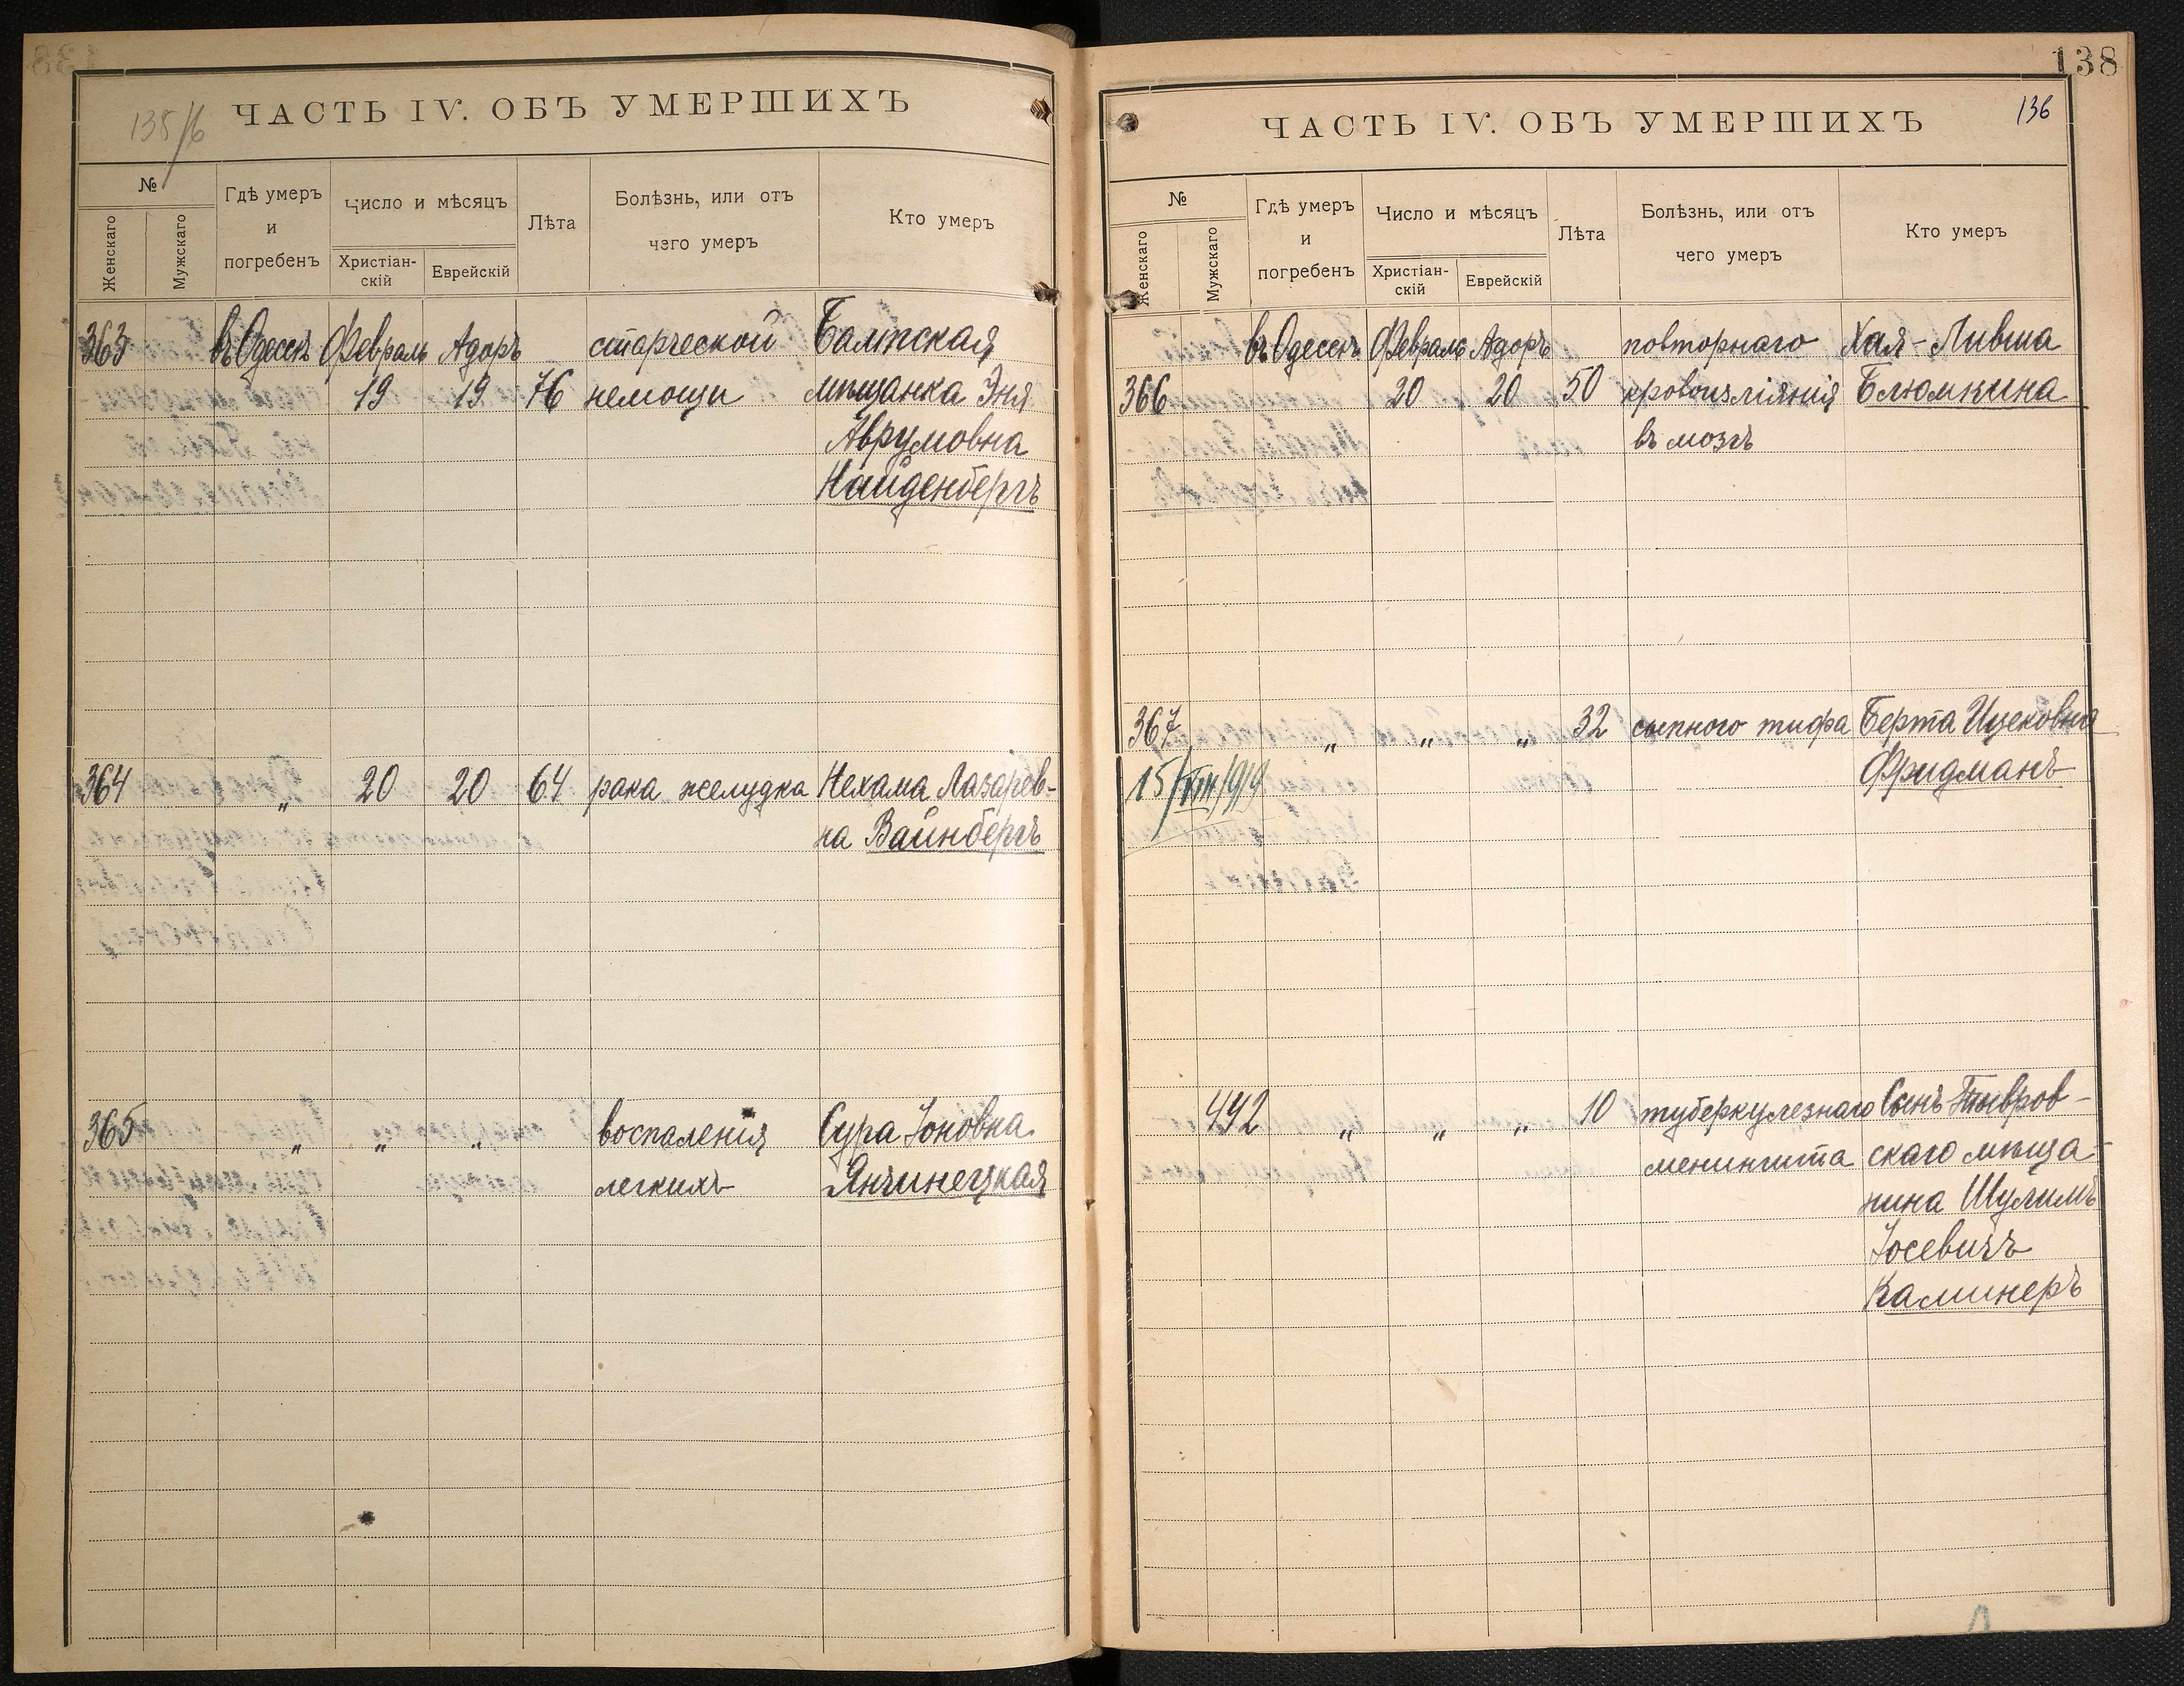 135/6
ЧАСТЬ IV. ОБЪ УМЕРШИХЪ
№
Женскаго
Мужскаго
Гдѣ умеръ
и
погребенъ
Число и мѣсяцъ
Христіан-
скій
Еврейскій
Лѣта
Болѣзнь, или отъ
чего умеръ
Кто умеръ
363 въ Одессѣ Февраль Адоръ старческой Балтская
19 19 76 немощи мѣщанка Эня
Аврумовна
Найденбергъ
364 „ 20 20 64 рака желудка Нехама Лазарев-
на Вайнбергъ
365 „ „ „ воспаленія Сура Іоновна
легкихъ Янчинецкая
138
136
ЧАСТЬ IV. ОБЪ УМЕРШИХЪ
№
Женскаго
Мужскаго
Гдѣ умеръ
и
погребенъ
Число и мѣсяцъ
Христіан-
скій
Еврейскій
Лѣта
Болѣзнь, или отъ
чего умеръ
Кто умеръ
въ Одессѣ Февраль Адоръ повторнаго Хая-Ливша
366 20 20 50 кровоизліянія Блюмкина
въ мозгъ
367 „ „ „ 32 сыпного тифа Берта Ицековна
15/VIII 1919 Фридманъ
442 „ „ „ 10 туберкулезнаго Сынъ Тывров-
менингита скаго мѣща-
нина Шулимъ
Іосевичъ
Каминеръ